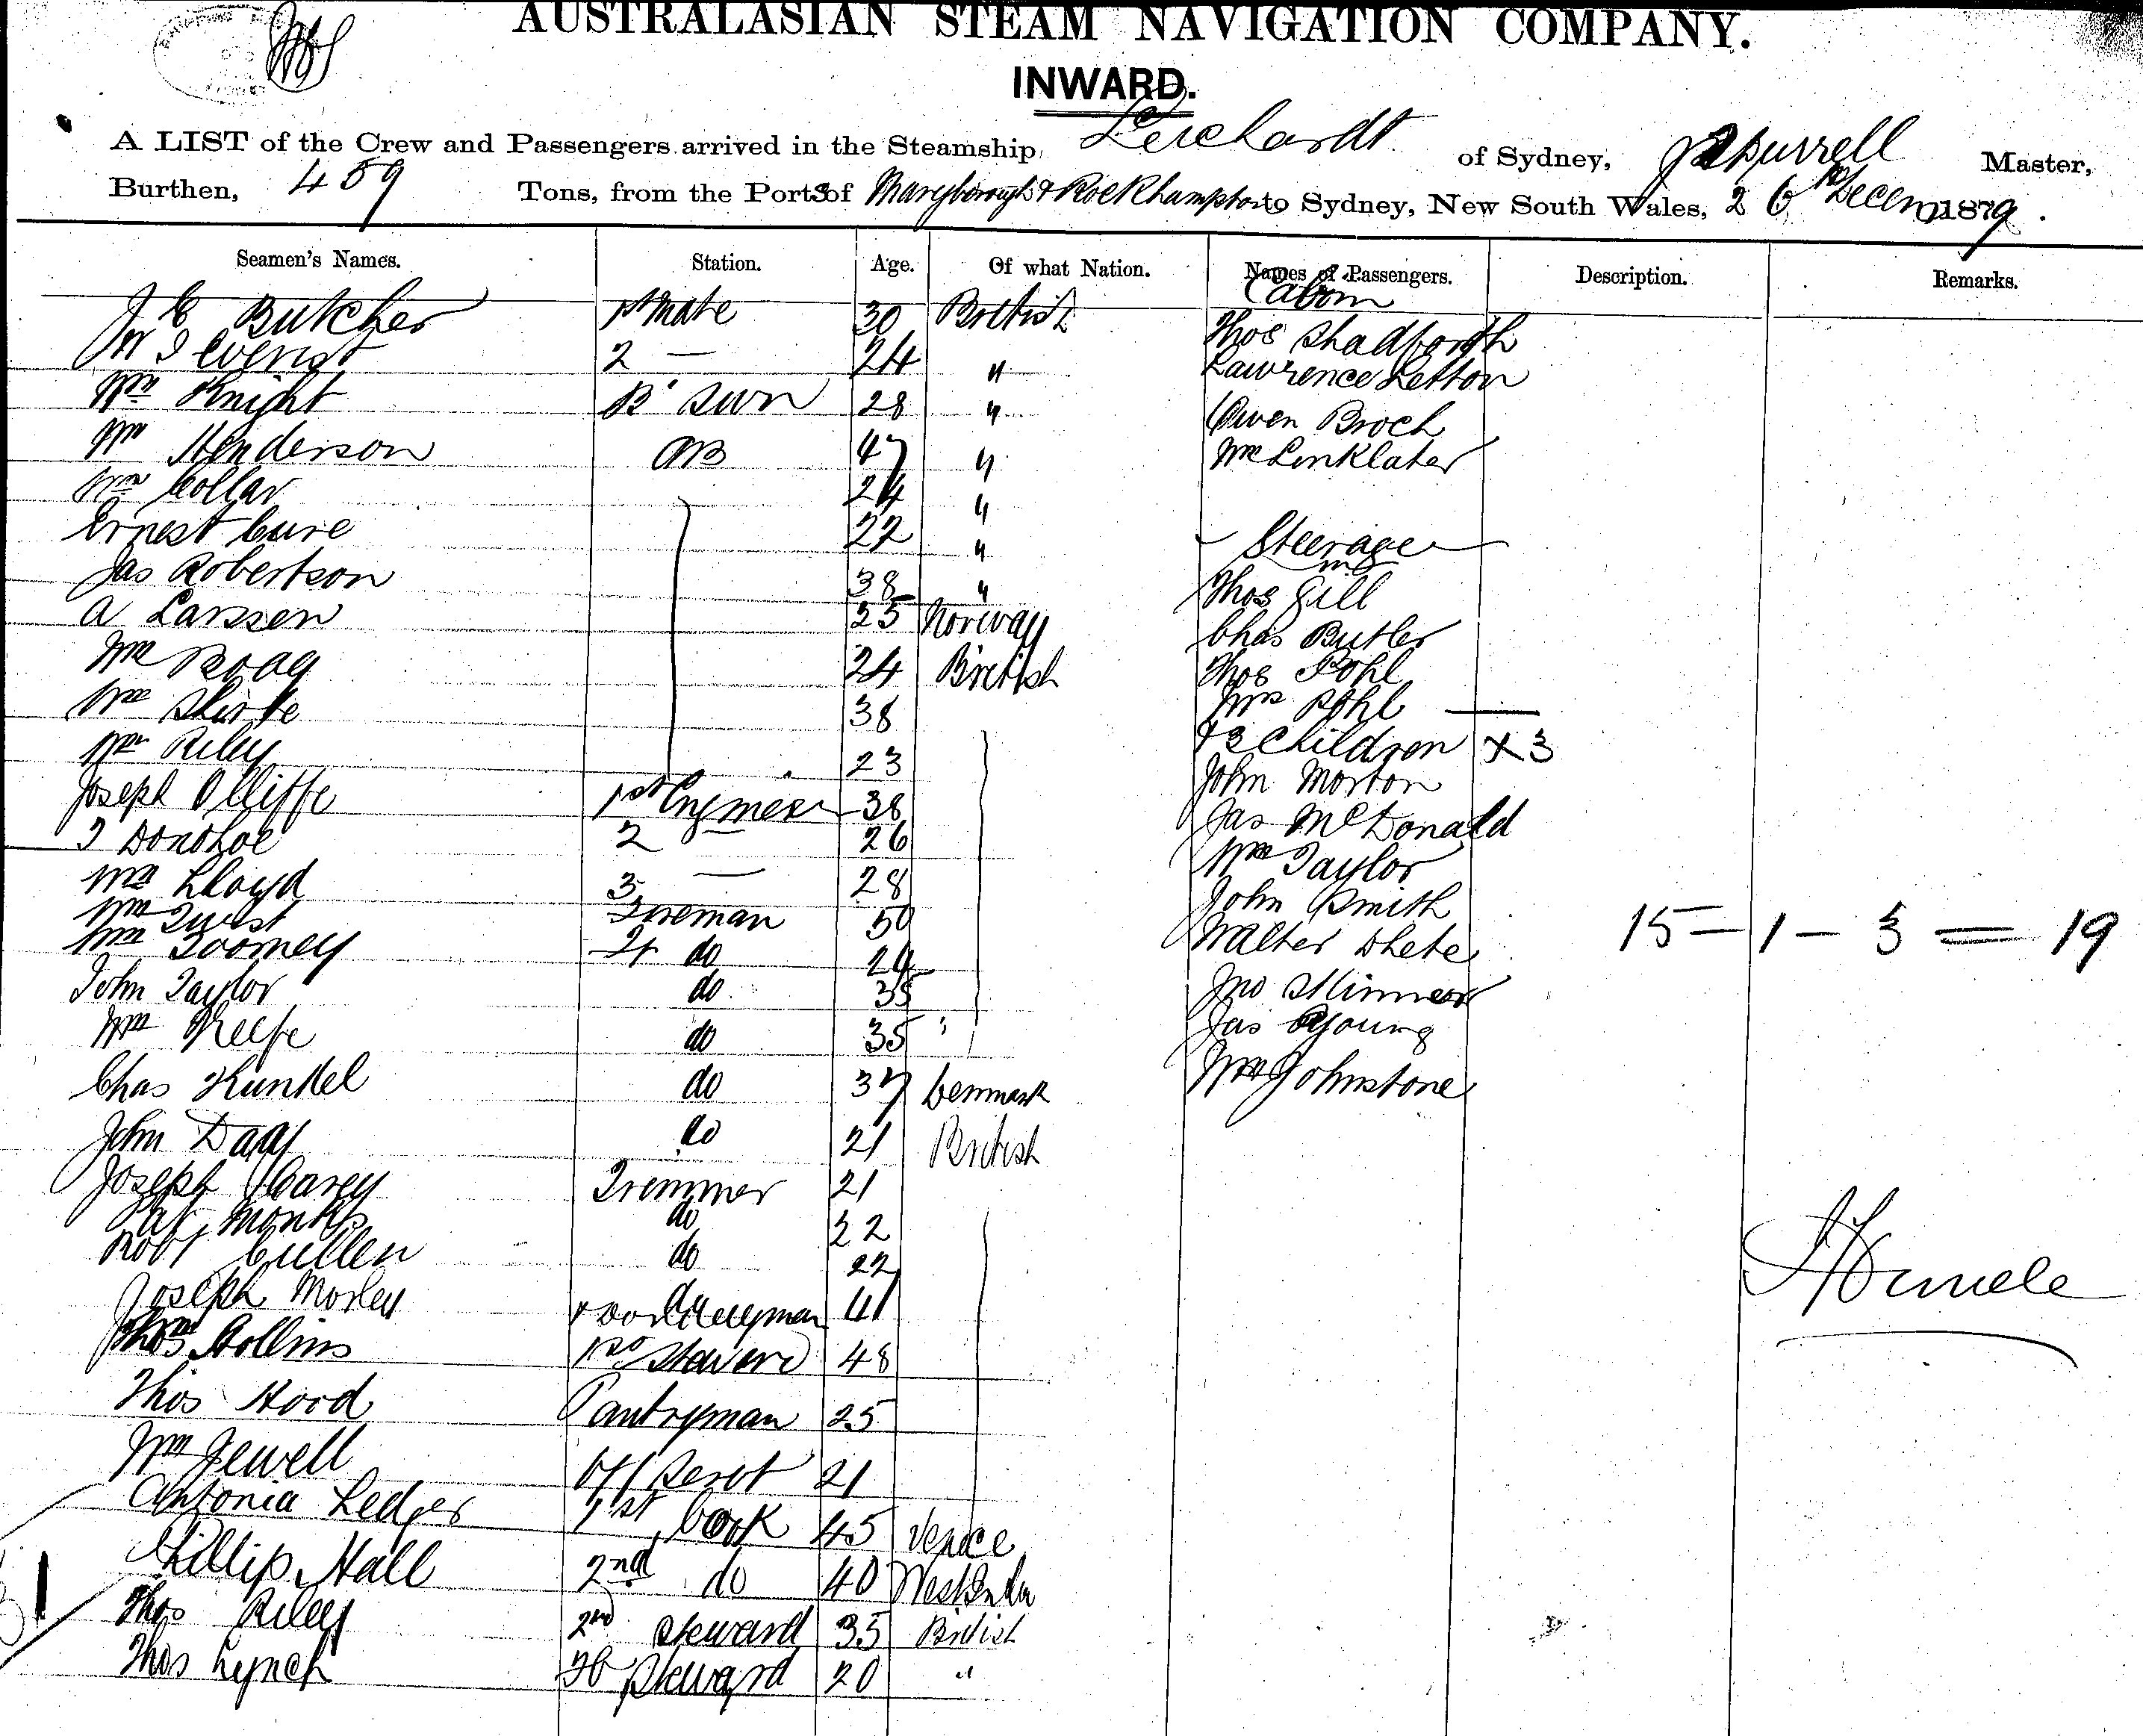 AUSTRALASIAN STEAM NAVIGATION COMPANY.
INWARD.
A LIST of the Crew and Passengers arrived in the Steamship, Leichardt of Sydney, Burrell Master,
Burthen, 489 Tons, from the Ports of Maryborough & Rockhampton to Sydney, New South Wales, 26 Decem 1879.
Seamen's Names. Station. Age. Of what Nation. Names of Passengers. Description. Remarks.
Cabin
J E Butcher 1st Mate 30 British
Thos Shadforth
2 — 24 "
Lawrence Letton
Wm Knight B'swn 28 "
Owen Broch
Wm Henderson AB 47 "
Wm Linklater
Wm Collar 24 "
Ernest Cure 22 "
Steerage
Jas Robertson 38 "
Thos Gill
A Larssen 25 Norway
Chas Butler
Wm 24 British
Thos Pohl
Wm 38
Mrs Pohl
Wm Riley 23
& 3 Children X 3
John Morton
Joseph Olliffe 1st Engineer 38
Jas McDonald
T Donohoe 2 — 26
Wm Taylor
Wm Lloyd 3 — 28
John Smith
Wm Fireman 50
Walter
15 — 1 — 3 = 19
Wm Toomey do 24
John Taylor do 35
Jno Skinner
Wm Keefe do 35
Jas Young
Chas Kunkel do 37 Denmark
Wm Johnstone
John Day do 21 British
Joseph Carey Trimmer 21
Monks do 22
Robt Cullen do 22
Joseph Morley 41
Thos Collins 1st Steward 48
Thos Hood Pantryman 25
Wm Jewell Off Servt 21
Antonia Ledger 1st Cook 45 Venice
Phillip Hall 2nd do 40 West Inda
Thos Riley 2nd Steward 35 British
Thos Lynch Steward 20 "